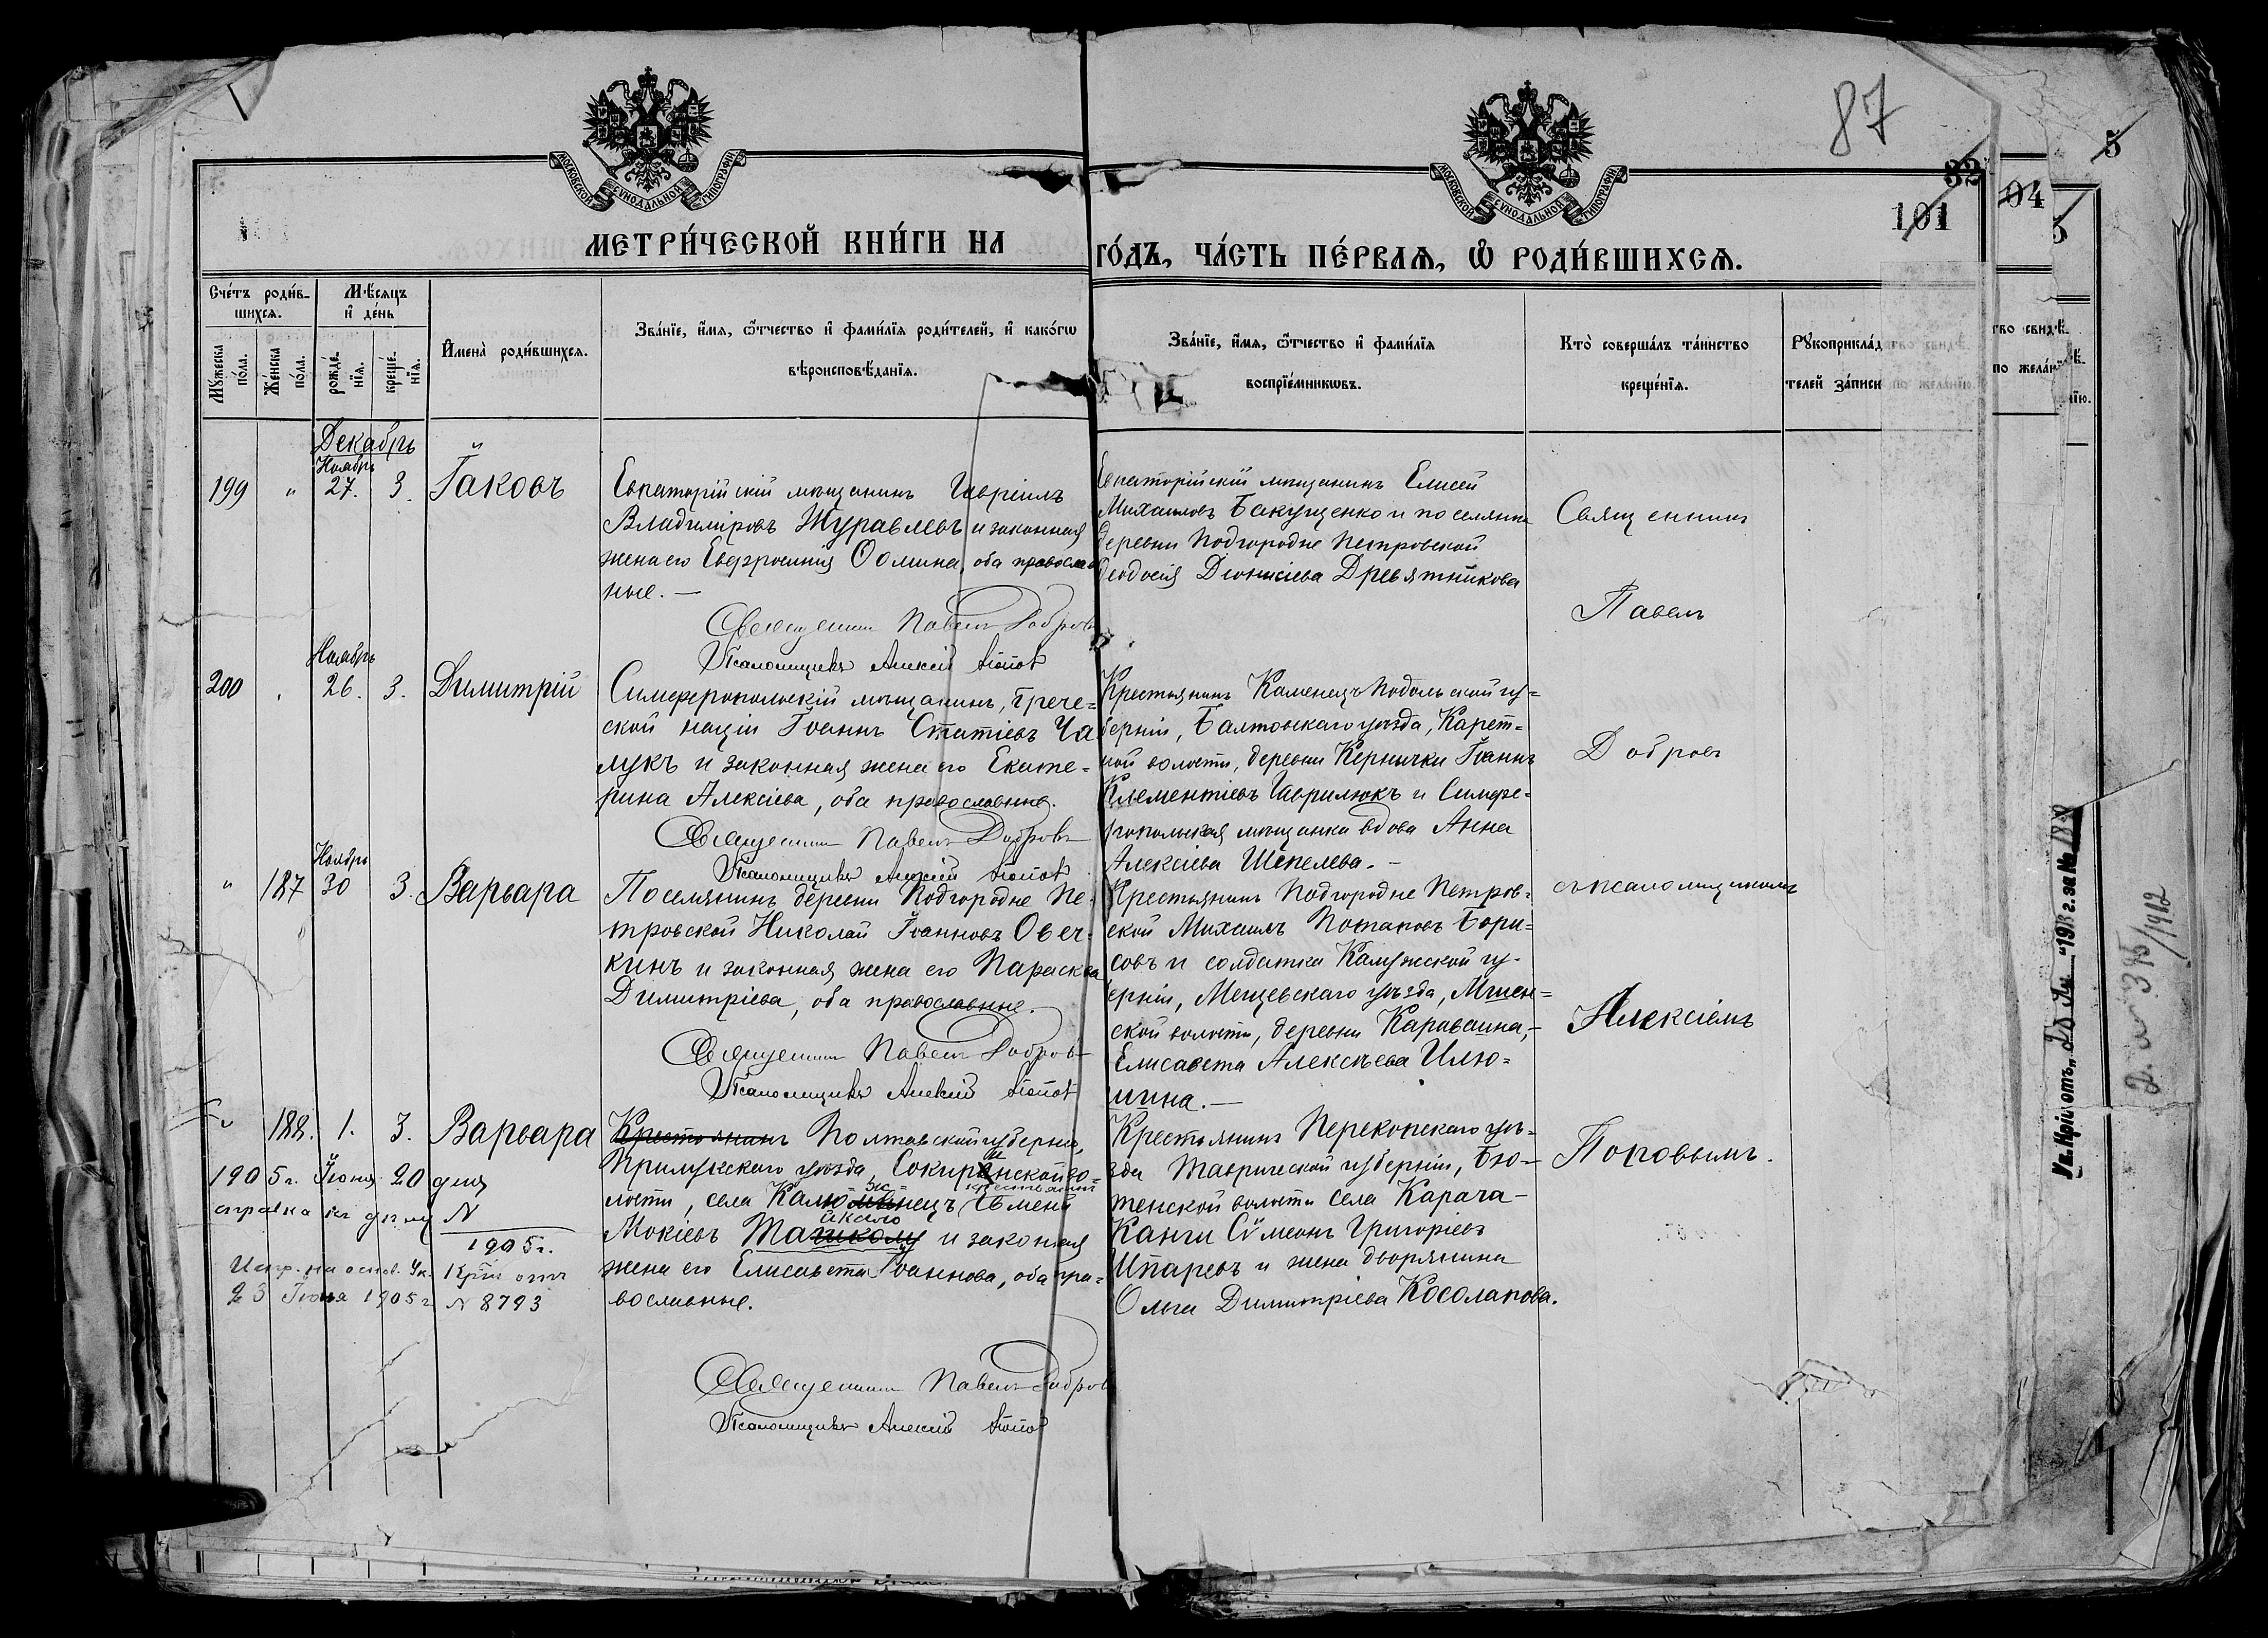 87
МОСКОВСКОЙ СУНОДАЛЬНОЙ ТИПОГРАФІИ
МОСКОВСКОЙ СУНОДАЛЬНОЙ ТИПОГРАФІИ
32
101
04
5
МЕТРИ́ЧЕСКОЙ КНИ́ГИ НА
ГО́ДЪ, ЧА́СТЬ ПЕ́РВАѦ, Ѡ҆ РОДИ́ВШИХСѦ.
Сче́тъ роди́в-
шихсѧ.
Мѣ́сѧцъ
и҆ де́нь
Мꙋ́жеска
по́ла.
Же́нска
по́ла.
рожде́-
нїѧ.
креще́-
нїѧ.
И҆мена̀ роди́вшихсѧ.
Зва́нїе, и҆́мѧ, ѻ҆́тчество и҆ фами́лїѧ роди́телей, и҆ како́гѡ
вѣроисповѣ́данїѧ.
Зва́нїе, и҆́мѧ, ѻ҆́тчество и҆ фами́лїѧ
воспрїе́мникѡвъ.
Кто̀ соверша́лъ та́инство
креще́нїѧ.
Рꙋкоприкла́д
телей за́писи
тво свидѣ-
по жела́н
Декабрь
199 " Ноябрь 27. 3. Іаковъ
Евпаторійскій мѣщанинъ Гавріилъ
Владиміровъ Журавлевъ и законная
жена его Евфросинія Ѳомина, оба православ
ные. —
Священникъ Павелъ Добровъ
Псаломщикъ Алексій Поповъ
Евпаторійскій мѣщанинъ Елисей
Михаиловъ Бакущенко и поселянка
деревни Подгородне Петровской
Ѳеодосія Діонисіева Древятникова
200 " Ноябрь 26. 3. Димитрій
Симферопольскій мѣщанинъ, Грече-
ской націи Іоаннъ Статіевъ Ча
лукъ и законная жена его Екате-
рина Алексіева, оба православные.
Священникъ Павелъ Добровъ
Псаломщикъ Алексій Поповъ
Крестьянинъ Каменецъ Подольской гу-
берніи, Балтскаго уѣзда, Карет-
ной волости, деревни Кернички Іоаннъ
Климентіевъ Гаврилюкъ и Симфе-
ропольская мѣщанка вдова Анна
Алексіева Шепелева. —
" 187 Ноябрь 30 3. Варвара
Поселянинъ деревни Подгородне Пе-
тровской Николай Іоанновъ Овеч-
кинъ и законная жена его Параскева
Димитріева, оба православные.
Священникъ Павелъ Добровъ
Псаломщикъ Алексій Поповъ
Крестьянинъ Подгородне Петров-
ской Михаилъ Потаповъ Бори-
совъ и солдатка Калужской гу-
берніи, Мещевскаго уѣзда,
ской волости, деревни Караваина,
Елисавета Алексѣева Илю-
шина. —
" 188. 1. 3. Варвара
Крестьянинъ Полтавской губерніи,
Прилукскаго уѣзда, Сокиринской во-
лости, села крестьянинъ
Мокіевъ и законная
жена его Елисавета Іоаннова, оба пра-
вославные.
Священникъ Павелъ Добровъ
Псаломщикъ Алексій Поповъ
Крестьянинъ Перекопскаго уѣ-
зда Таврической губерніи, Бю-
тенской волости села Карача-
Канги Сѵмеонъ Григоріевъ
Шпаревъ и жена дворянина
Ольга Димитріева Косолапова.
1905 г. Іюня 20 дня
справка къ дѣлу №
1905 г.
Испр. на основ. Ук. Крім отъ
23 Іюня 1905 г. № 8793
Священникъ
Павелъ
Добровъ
съ псаломщикомъ
Алексіемъ
Поповымъ.